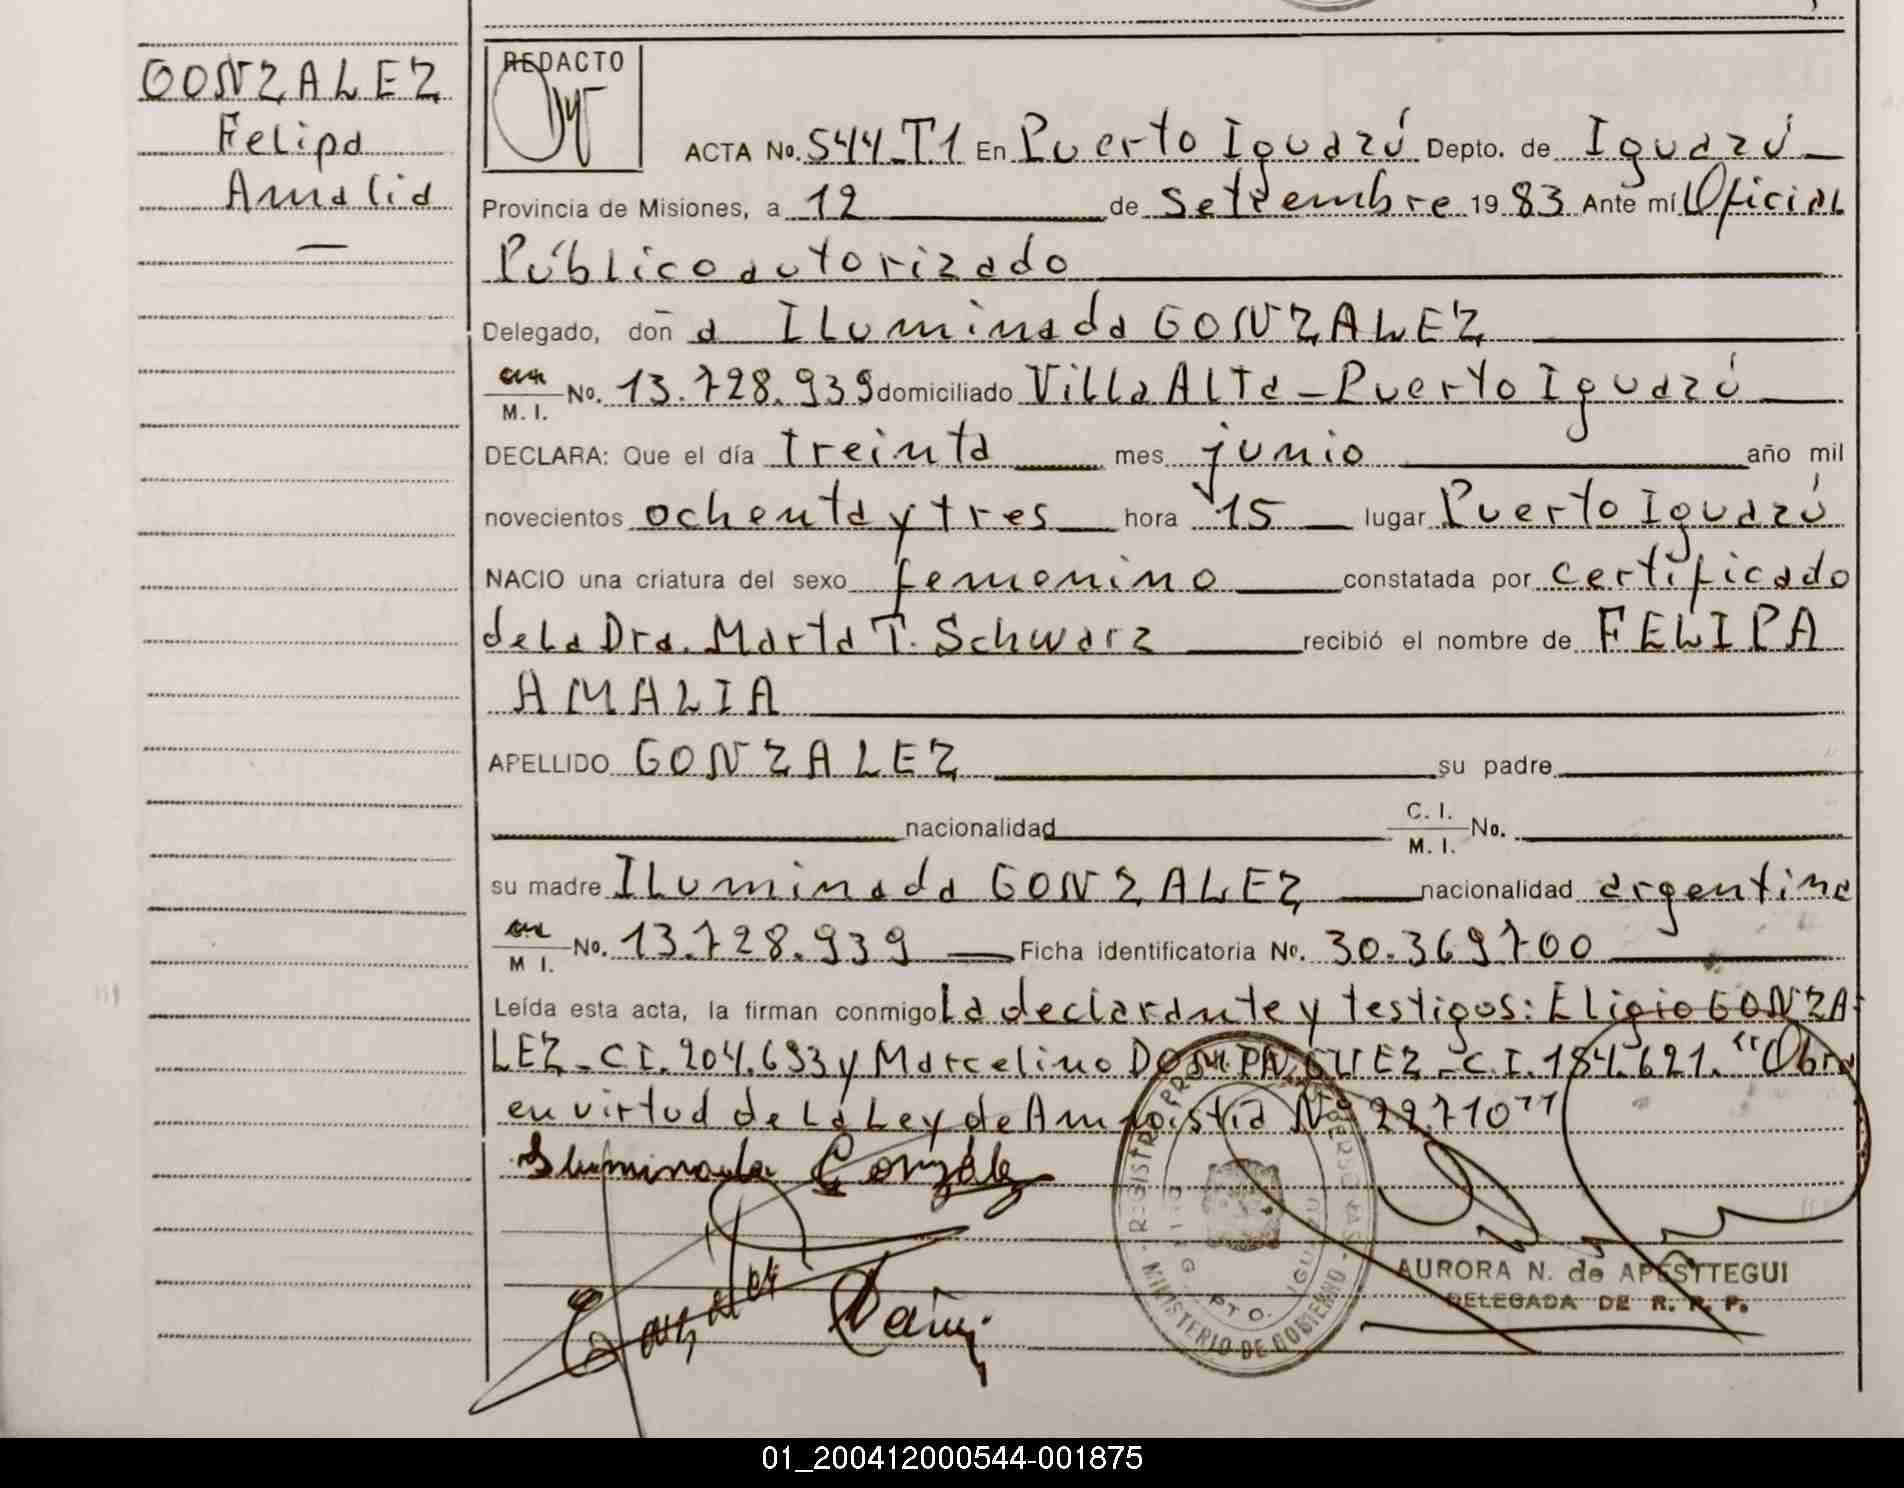 GONZALEZ
Felipa
Amalia
REDACTO
ACTA No. 544_T1 En Puerto Iguazú Depto. de Iguazú
Provincia de Misiones, a 12 de setiembre 1983 Ante mí Oficial
Público autorizado
Delegado, doña Iluminada GONZALEZ
M. I. No. 13.728.939 domiciliado Villa Alta - Puerto Iguazú
DECLARA: Que el día treinta mes junio año mil
novecientos ochenta y tres hora 15 lugar Puerto Iguazú
NACIO una criatura del sexo femenino constatada por certificado
de la Dra. Marta T. Schwarz recibió el nombre de FELIPA
AMALIA
APELLIDO GONZALEZ su padre
nacionalidad C. I. M. I. No.
su madre Iluminada GONZALEZ nacionalidad argentina
M I. No. 13.728.939 Ficha identificatoria No. 30.369.700
Leída esta acta, la firman conmigo la declarante y testigos: Eligio GONZA-
LEZ - C.I. 204.693 y Marcelino DOMINGUEZ - C.I. 184.621. "Obra
en virtud de La Ley de Amnistia Nº 22.710"
Iluminada González
REGISTRO PROV. DE LAS PERSONAS
MINISTERIO DE GOBIERNO
DPTO. IGUAZU
AURORA N. de APESTTEGUI
DELEGADA DE R. R. P.
01_200412000544-001875